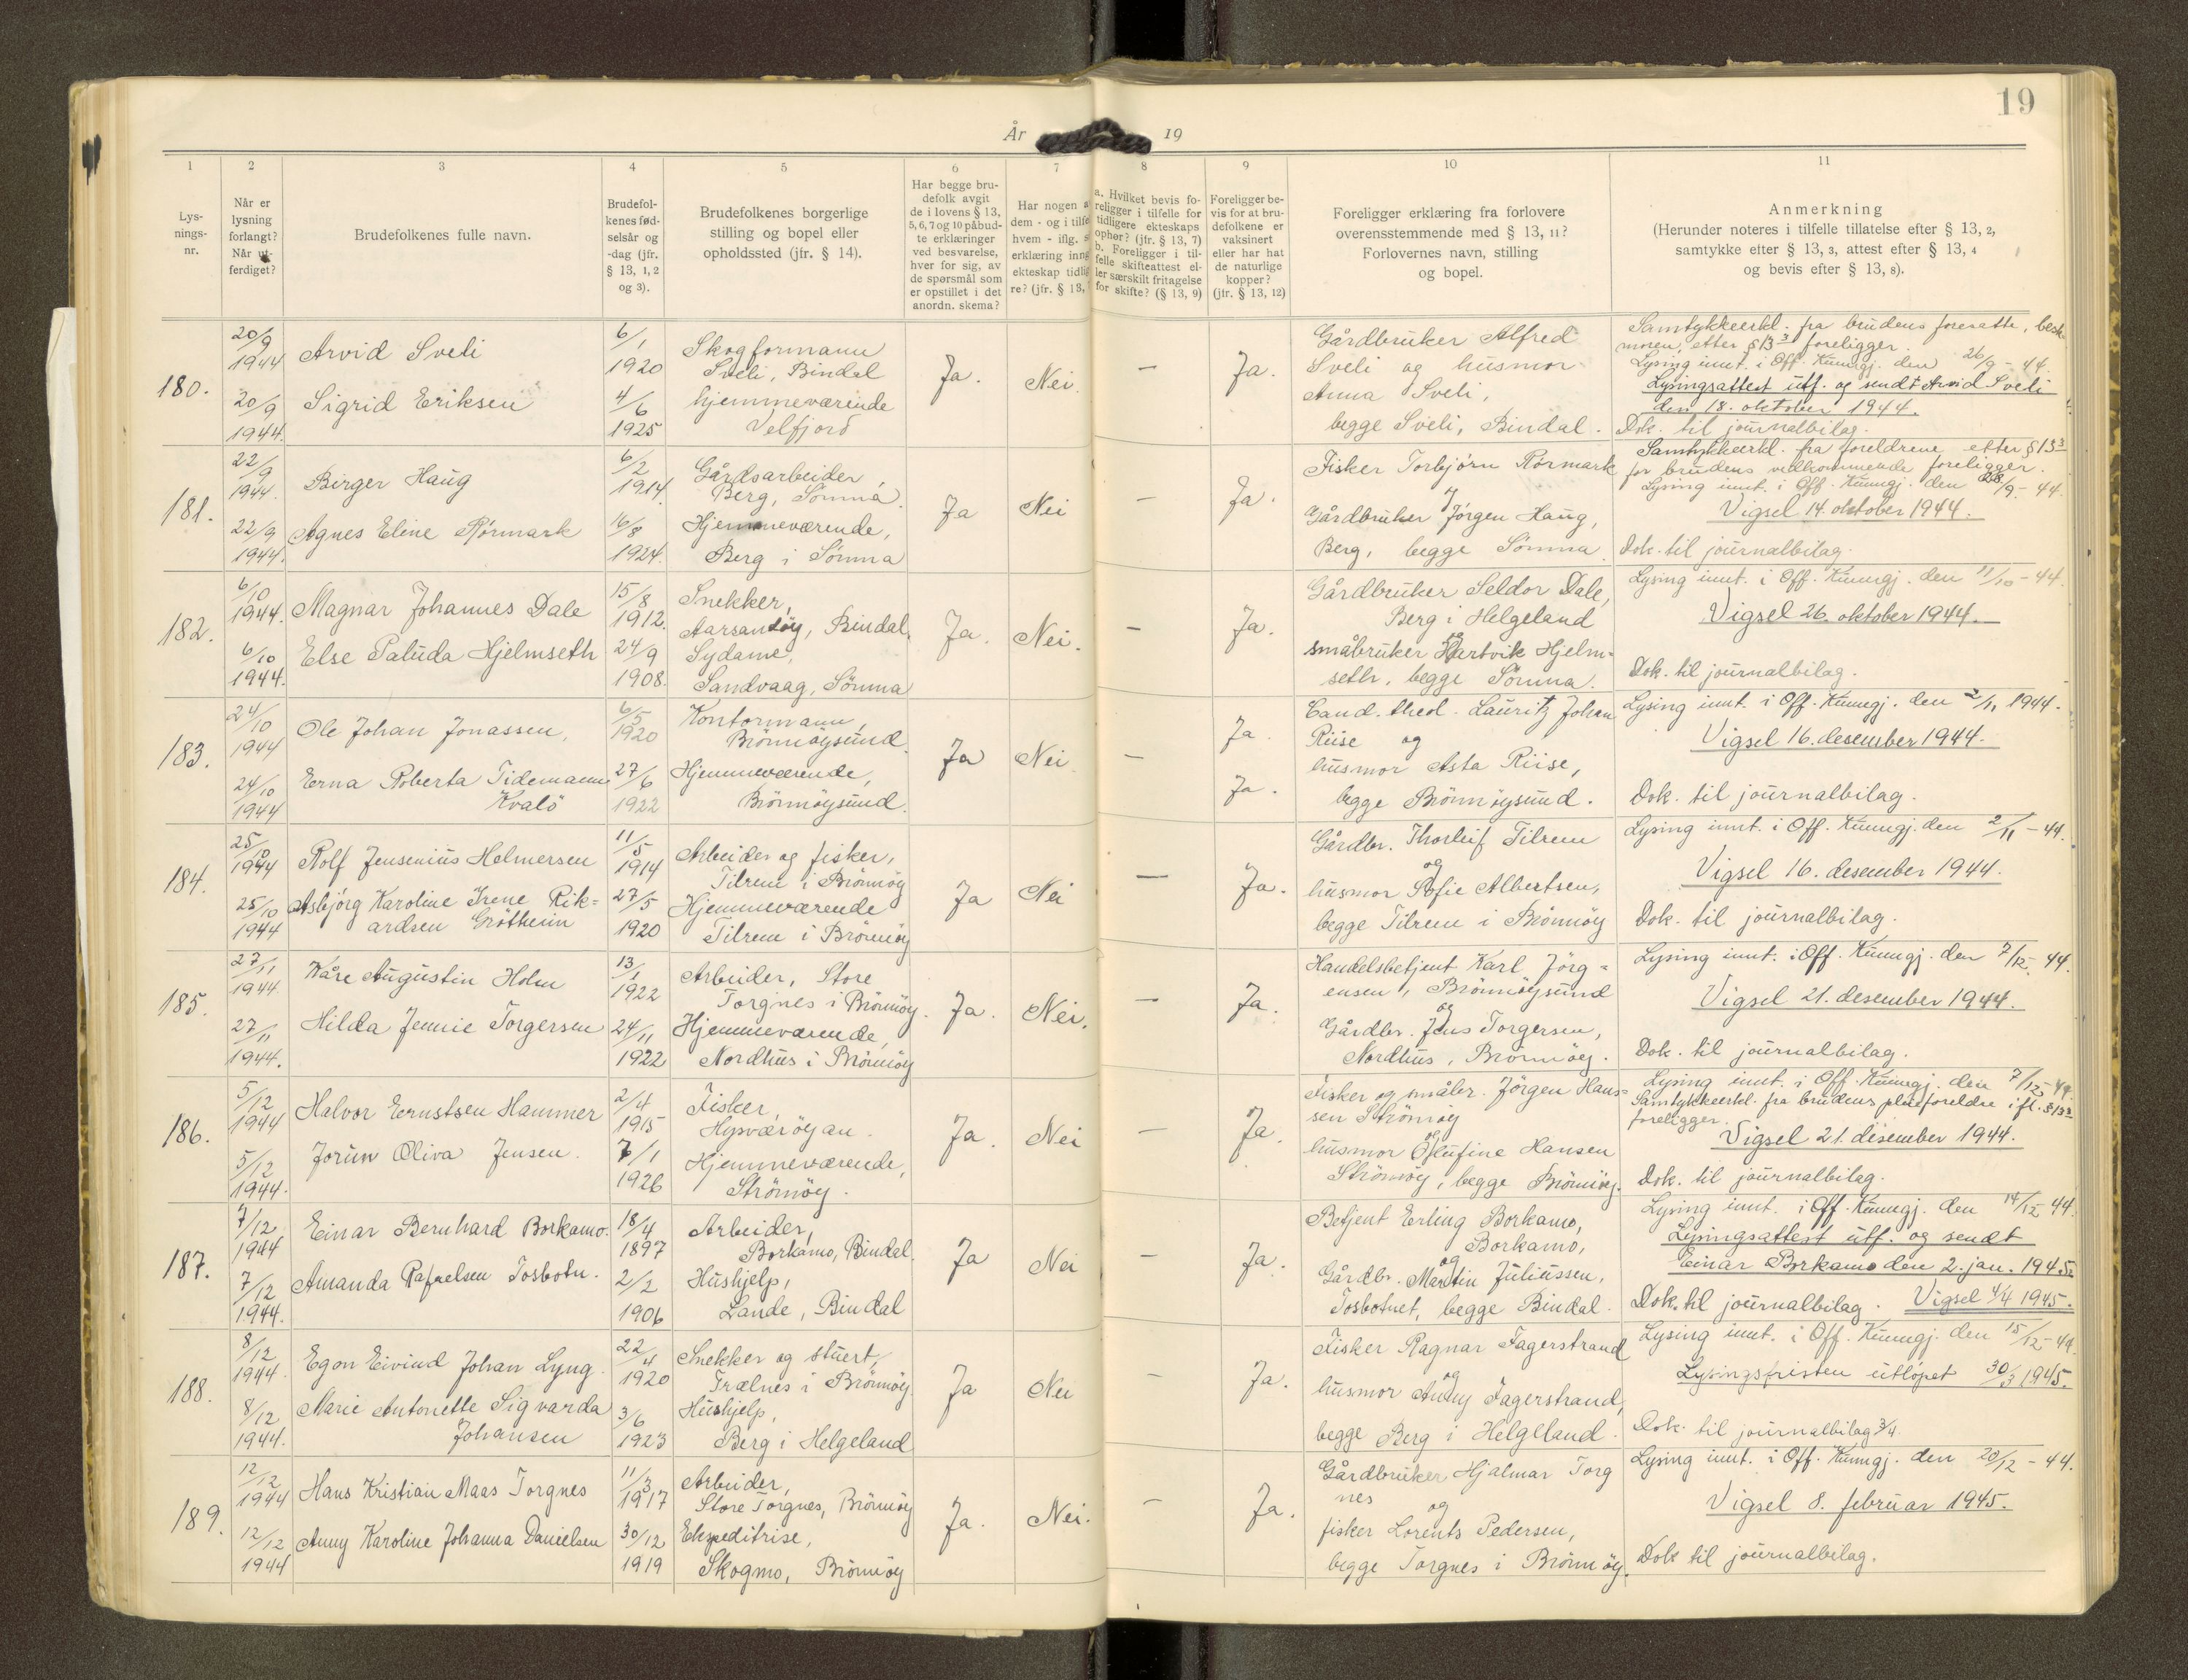 19
År 19
1 2 3 4 5 6 7 8 9 10 11
Lys-
nings-
nr.
Når er
lysning
forlangt?
Når ut-
ferdiget?
Brudefolkenes fulle navn.
Brudefol-
kenes fød-
selsår og
-dag (jfr.
§ 13, 1, 2
og 3).
Brudefolkenes borgerlige
stilling og bopel eller
opholdssted (jfr. § 14).
Har begge bru-
defolk avgit
de i lovens § 13,
5, 6, 7 og 10 påbud-
te erklæringer
ved besvarelse,
hver for sig, av
de spørsmål som
er opstillet i det
anordn. skema?
Har nogen a
dem - og i tilfe
hvem - iflg. s
erklæring inng
ekteskap tidlig
re? (jfr. § 13,
a. Hvilket bevis fo-
religger i tilfelle for
tidligere ekteskaps
ophør? (jfr. § 13, 7)
b. Foreligger i til-
felle skifteattest el-
ler særskilt fritagelse
for skifte? (§ 13, 9)
Foreligger be-
vis for at bru-
defolkene er
vaksinert
eller har hat
de naturlige
kopper?
(jfr. § 13, 12)
Foreligger erklæring fra forlovere
overensstemmende med § 13, 11?
Forlovernes navn, stilling
og bopel.
Anmerkning
(Herunder noteres i tilfelle tillatelse efter § 13, 2,
samtykke efter § 13, 3, attest efter § 13, 4
og bevis efter § 13, 8).
180.
20/9
1944
20/9
1944.
Arvid Sveli
Sigrid Eriksen
6/1
1920
4/6
1925
Skogformann
Sveli, Bindal
hjemmeværende
Velfjord
Ja.
Nei.
—
Ja.
Gårdbruker Alfred
Sveli og husmor
Anna Sveli,
begge Sveli, Bindal.
Samtykkeerkl. fra brudens foresatte, best-
moren, etter § 13³ foreligger.
Lysing innt. i Off. Kunngj. den 26/9 - 44.
Lysingsattest utf. og sendt Arvid Sveli
den 18. oktober 1944.
Dok. til journalbilag.
181.
22/9
1944.
22/9
1944.
Birger Haug
Agnes Eline Rörmark
6/2
1914.
16/8
1924.
Gårdsarbeider,
Berg, Sömna.
Hjemmeværende,
Berg i Sömna
Ja
Nei
—
Ja.
Fisker Torbjörn Rörmark
og
Gårdbruker Jörgen Haug,
Berg, begge Sömna.
Samtykkeerkl. fra foreldrene etter § 13³
for brudens vedkommende foreligger.
Lysing innt. i Off. Kunngj. den 28/9 - 44.
Vigsel 14. oktober 1944.
Dok. til journalbilag.
182.
6/10
1944.
6/10
1944.
Magnar Johannes Dale
Else Paluda Hjelmseth
15/8
1912.
24/9
1908.
Snekker,
Aarsandöy, Bindal.
Sydame,
Sandvaag, Sömna
Ja.
Nei.
—
Ja.
Gårdbruker Seldor Dale,
Berg i Helgeland
og
småbruker Hartvik Hjelm-
seth, begge Sömna.
Lysing innt. i Off. Kunngj. den 11/10 - 44.
Vigsel 26. oktober 1944.
Dok. til journalbilag.
183.
24/10
1944
24/10
1944
Ole Johan Jonassen,
Erna Roberta Tidemann
Kvalö
6/5
1920
27/6
1922
Kontormann,
Brönnöysund.
Hjemmeværende,
Brönnöysund.
Ja
Nei
—
Ja.
Ja.
Cand. theol. Lauritz Johan
Riise og
husmor Asta Riise,
begge Brönnöysund.
Lysing innt. i Off. Kunngj. den 2/11 1944.
Vigsel 16. desember 1944.
Dok. til journalbilag.
184.
25/10
1944
25/10
1944
Rolf Jensenius Helmersen
Asbjörg Karoline Irene Rik=
ardsen Gröttheim
11/5
1914
27/5
1920
Arbeider og fisker,
Tilrem i Brönnöy
Hjemmeværende
Tilrem i Brönnöy
Ja
Nei
—
Ja.
Gårdbr. Thorleif Tilrem
og
husmor Sofie Albertsen,
begge Tilrem i Brönnöy
Lysing innt. i Off. Kunngj. den 2/11 - 44.
Vigsel 16. desember 1944.
Dok. til journalbilag.
185.
27/11
1944
27/11
1944.
Kåre Augustin Holm
Hilda Jennie Torgersen
13/1
1922
24/11
1922
Arbeider, Store
Torgnes i Brönnöy.
Hjemmeværende,
Nordhus i Brönnöy
Ja.
Nei.
—
Ja.
Handelsbetjent Karl Jörg=
ensen, Brönnöysund
og
Gårdbr. Jens Torgersen,
Nordhus, Brönnöy.
Lysing innt. i Off. Kunngj. den 7/12. 44.
Vigsel 21. desember 1944.
Dok. til journalbilag.
186.
5/12
1944
5/12
1944.
Halvor Ernstsen Hammer
Jorun Oliva Jensen.
2/4
1915
7/1
1926
Fisker,
Hysværöyan.
Hjemmeværende,
Strömöy.
Ja.
Nei
—
Ja.
Fisker og småbr. Jörgen Hans=
sen Strömöy
og
husmor Olufine Hansen
Strömöy, begge Brönnöy.
Lysing innt. i Off. Kunngj. den 7/12 - 44.
Samtykkeerkl. fra brudens pleieforeldre ifl. § 13³
foreligger.
Vigsel 21. desember 1944.
Dok. til journalbilag.
187.
7/12
1944
7/12
1944.
Einar Bernhard Borkamo.
Amanda Rafaelsen Tosbotn.
18/4
1897
2/2
1906
Arbeider,
Borkamo, Bindal.
Hushjelp,
Lande, Bindal
Ja
Nei
—
Ja.
Betjent Erling Borkamo,
Borkamo,
og
Gårdbr. Martin Juliussen,
Tosbotnet, begge Bindal.
Lysing innt. i Off. Kunngj. den 14/12 44.
Lysingsattest utf. og sendt
Einar Borkamo den 2. jan. 1945.
Dok. til journalbilag. Vigsel 4/4 1945.
188.
8/12
1944.
8/12
1944.
Egon Eivind Johan Lyng.
Marie Antonette Sigvarda
Johansen
22/4
1920
3/6
1923
Snekker og stuert,
Trælnes i Brönnöy.
Hushjelp,
Berg i Helgeland
Ja
Nei
—
Ja.
Fisker Ragnar Fagerstrand
og
husmor Anny Fagerstrand,
begge Berg i Helgeland.
Lysing innt. i Off. Kunngj. den 15/12 - 44.
Lysingsfristen utlöpet 30/3 1945.
Dok. til journalbilag 3/4.
189.
12/12
1944
12/12
1944
Hans Kristian Maas Torgnes
Anny Karoline Johanna Danielsen
11/3
1917
30/12
1919
Arbeider,
Store Torgnes, Brönnöy
Ekspeditrise,
Skogmo, Brönnöy
Ja.
Nei.
—
Ja.
Gårdbruker Hjalmar Torg
nes og
fisker Lorents Pedersen,
begge Torgnes i Brönnöy.
Lysing innt. i Off. Kunngj. den 20/12 - 44.
Vigsel 8. februar 1945.
Dok til journalbilag.